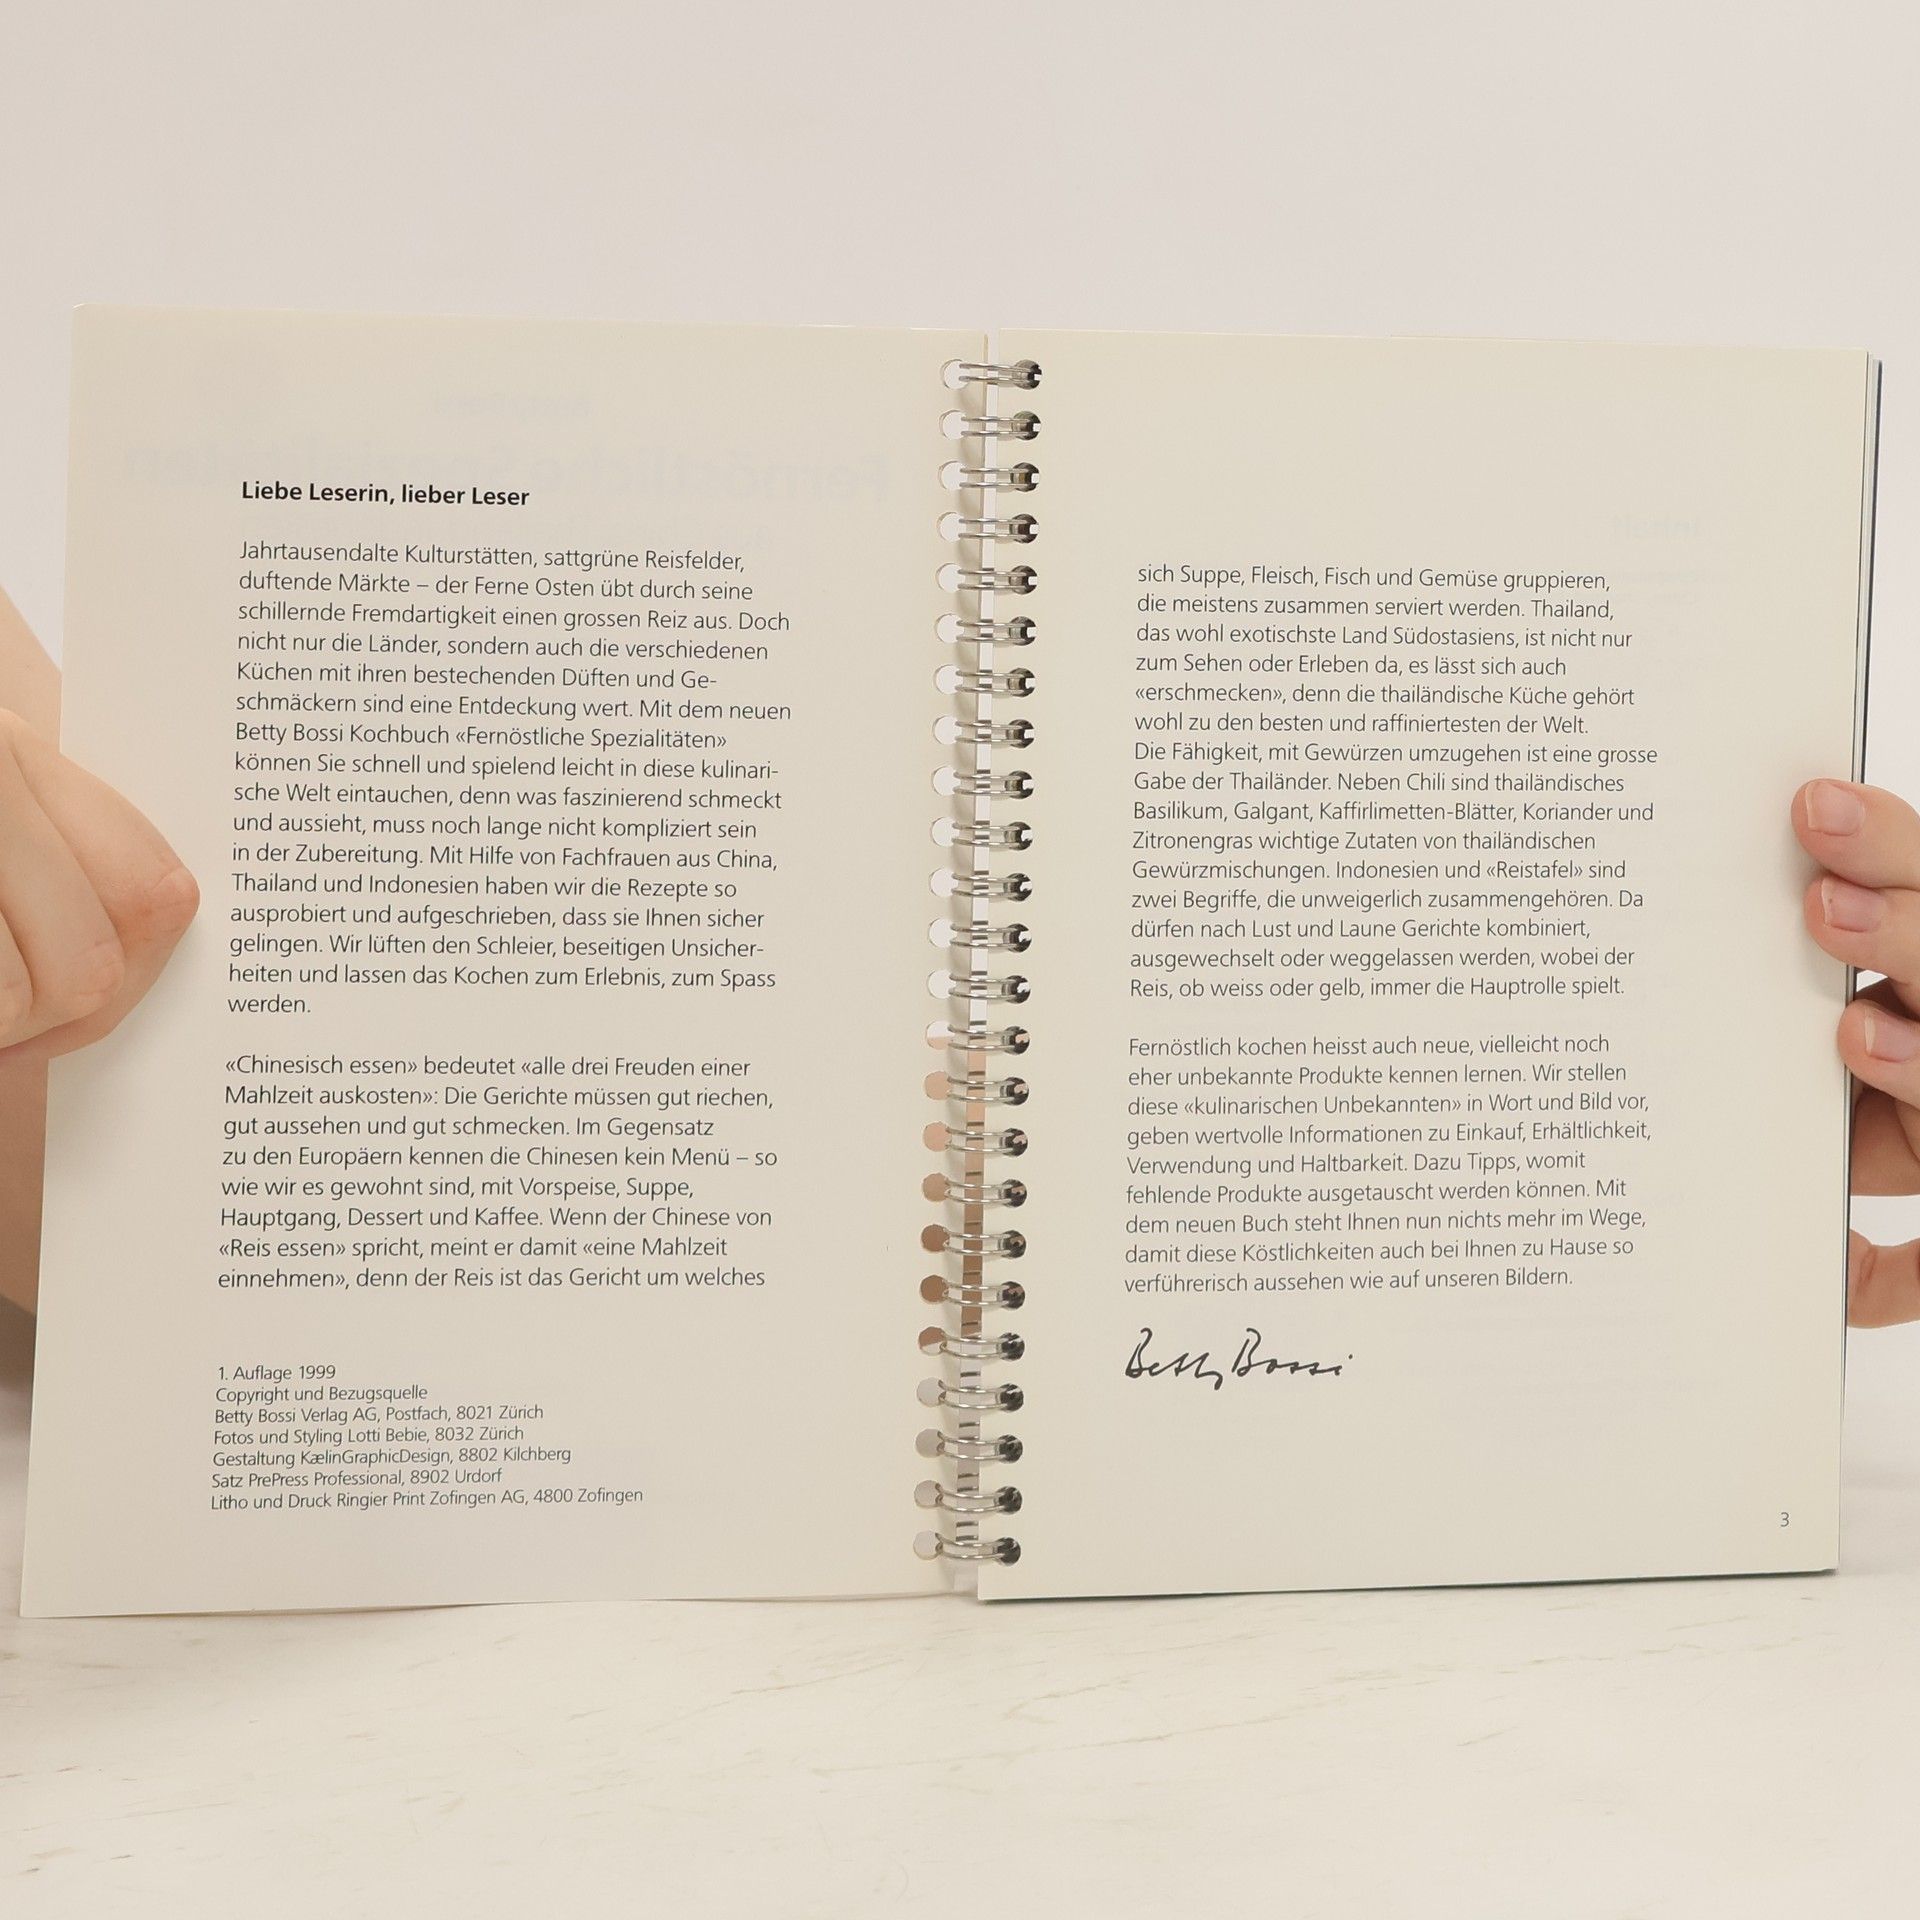 Liebe Leserin, lieber Leser
Jahrtausendalte Kulturstätten, sattgrüne Reisfelder,
duftende Märkte – der Ferne Osten übt durch seine
schillernde Fremdartigkeit einen grossen Reiz aus. Doch
nicht nur die Länder, sondern auch die verschiedenen
Küchen mit ihren bestechenden Düften und Ge-
schmäckern sind eine Entdeckung wert. Mit dem neuen
Betty Bossi Kochbuch «Fernöstliche Spezialitäten»
können Sie schnell und spielend leicht in diese kulinari-
sche Welt eintauchen, denn was faszinierend schmeckt
und aussieht, muss noch lange nicht kompliziert sein
in der Zubereitung. Mit Hilfe von Fachfrauen aus China,
Thailand und Indonesien haben wir die Rezepte so
ausprobiert und aufgeschrieben, dass sie Ihnen sicher
gelingen. Wir lüften den Schleier, beseitigen Unsicher-
heiten und lassen das Kochen zum Erlebnis, zum Spass
werden.
«Chinesisch essen» bedeutet «alle drei Freuden einer
Mahlzeit auskosten»: Die Gerichte müssen gut riechen,
gut aussehen und gut schmecken. Im Gegensatz
zu den Europäern kennen die Chinesen kein Menü – so
wie wir es gewohnt sind, mit Vorspeise, Suppe,
Hauptgang, Dessert und Kaffee. Wenn der Chinese von
«Reis essen» spricht, meint er damit «eine Mahlzeit
einnehmen», denn der Reis ist das Gericht um welches
1. Auflage 1999
Copyright und Bezugsquelle
Betty Bossi Verlag AG, Postfach, 8021 Zürich
Fotos und Styling Lotti Bebie, 8032 Zürich
Gestaltung KælinGraphicDesign, 8802 Kilchberg
Satz PrePress Professional, 8902 Urdorf
Litho und Druck Ringier Print Zofingen AG, 4800 Zofingen
sich Suppe, Fleisch, Fisch und Gemüse gruppieren,
die meistens zusammen serviert werden. Thailand,
das wohl exotischste Land Südostasiens, ist nicht nur
zum Sehen oder Erleben da, es lässt sich auch
«erschmecken», denn die thailändische Küche gehört
wohl zu den besten und raffiniertesten der Welt.
Die Fähigkeit, mit Gewürzen umzugehen ist eine grosse
Gabe der Thailänder. Neben Chili sind thailändisches
Basilikum, Galgant, Kaffirlimetten-Blätter, Koriander und
Zitronengras wichtige Zutaten von thailändischen
Gewürzmischungen. Indonesien und «Reistafel» sind
zwei Begriffe, die unweigerlich zusammengehören. Da
dürfen nach Lust und Laune Gerichte kombiniert,
ausgewechselt oder weggelassen werden, wobei der
Reis, ob weiss oder gelb, immer die Hauptrolle spielt.
Fernöstlich kochen heisst auch neue, vielleicht noch
eher unbekannte Produkte kennen lernen. Wir stellen
diese «kulinarischen Unbekannten» in Wort und Bild vor,
geben wertvolle Informationen zu Einkauf, Erhältlichkeit,
Verwendung und Haltbarkeit. Dazu Tipps, womit
fehlende Produkte ausgetauscht werden können. Mit
dem neuen Buch steht Ihnen nun nichts mehr im Wege,
damit diese Köstlichkeiten auch bei Ihnen zu Hause so
verführerisch aussehen wie auf unseren Bildern.
Betty Bossi
3